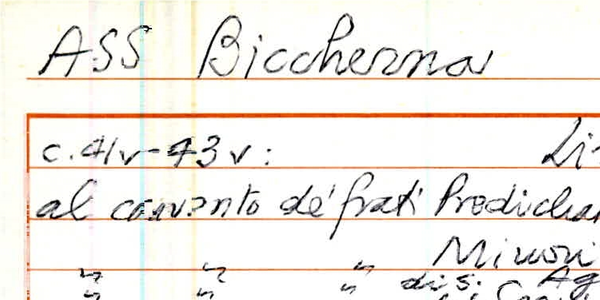 ASS Biccherna
c. 41v-43v: Li
al convento de' frati Predicha
Minori
" " " di S. Ag
" "